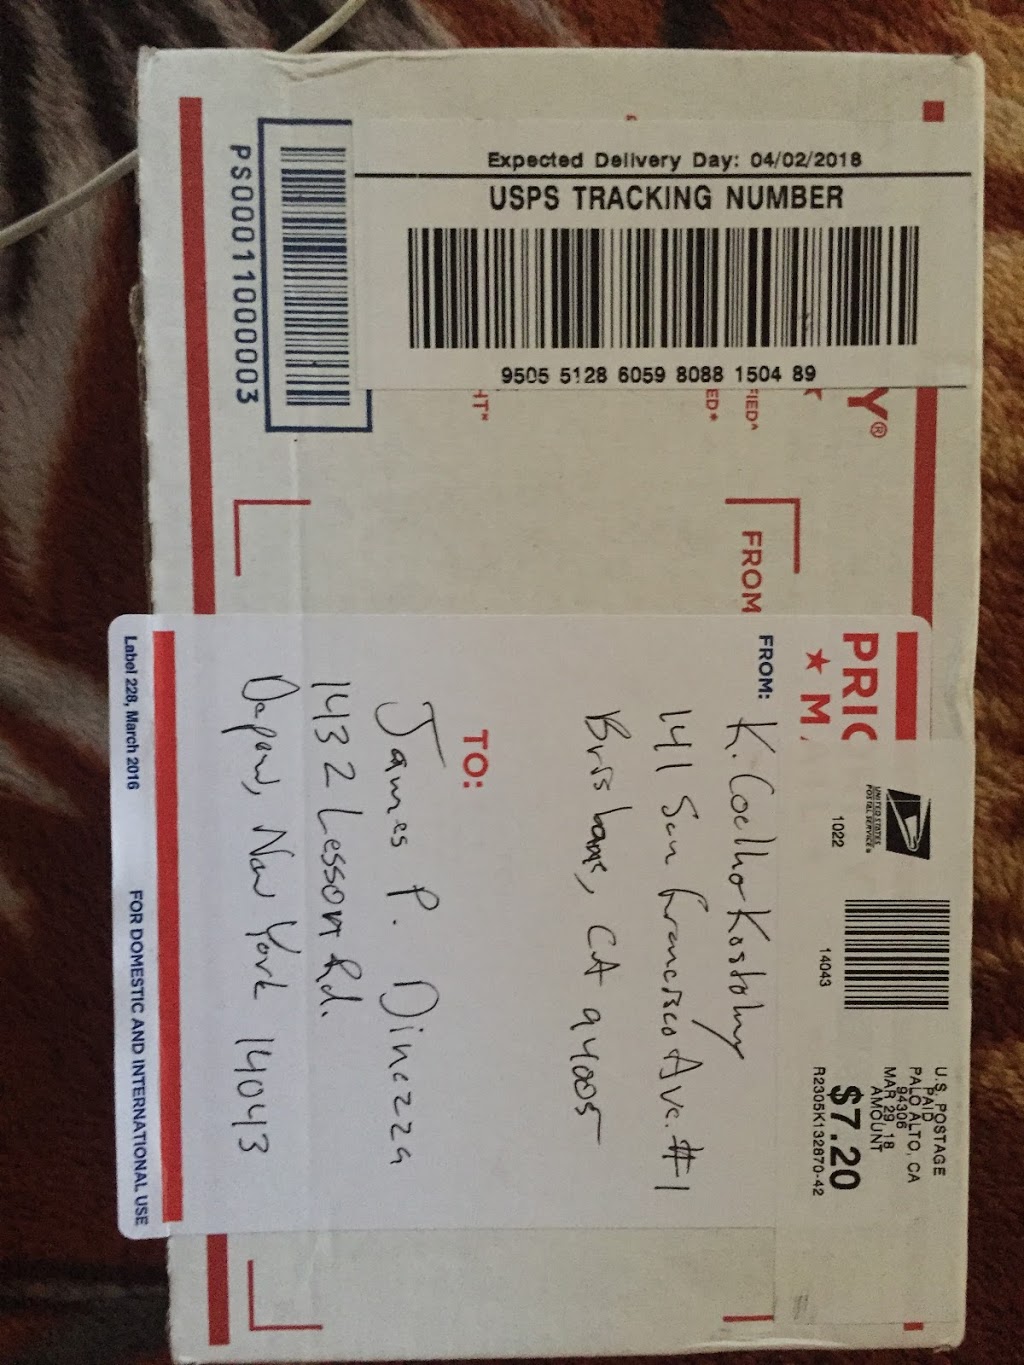 Expected Delivery Day: 04/02/2018
USPS TRACKING NUMBER
9505 5128 6059 8088 1504 89
PS00011000003
Y®
FIED^
ED*
HT*
FROM
PRIO
★ M
UNITED STATES
POSTAL SERVICE®
1022
14043
U.S. POSTAGE
PAID
PALO ALTO, CA
94306
MAR 29, 18
AMOUNT
$7.20
R2305K132870-42
FROM:
K. Coelho Kostolny
141 San Francisco Ave. #1
Brisbane, CA 94005
TO:
James P. Dinezza
1432 Lesson Rd.
Depew, New York 14043
Label 228, March 2016
FOR DOMESTIC AND INTERNATIONAL USE